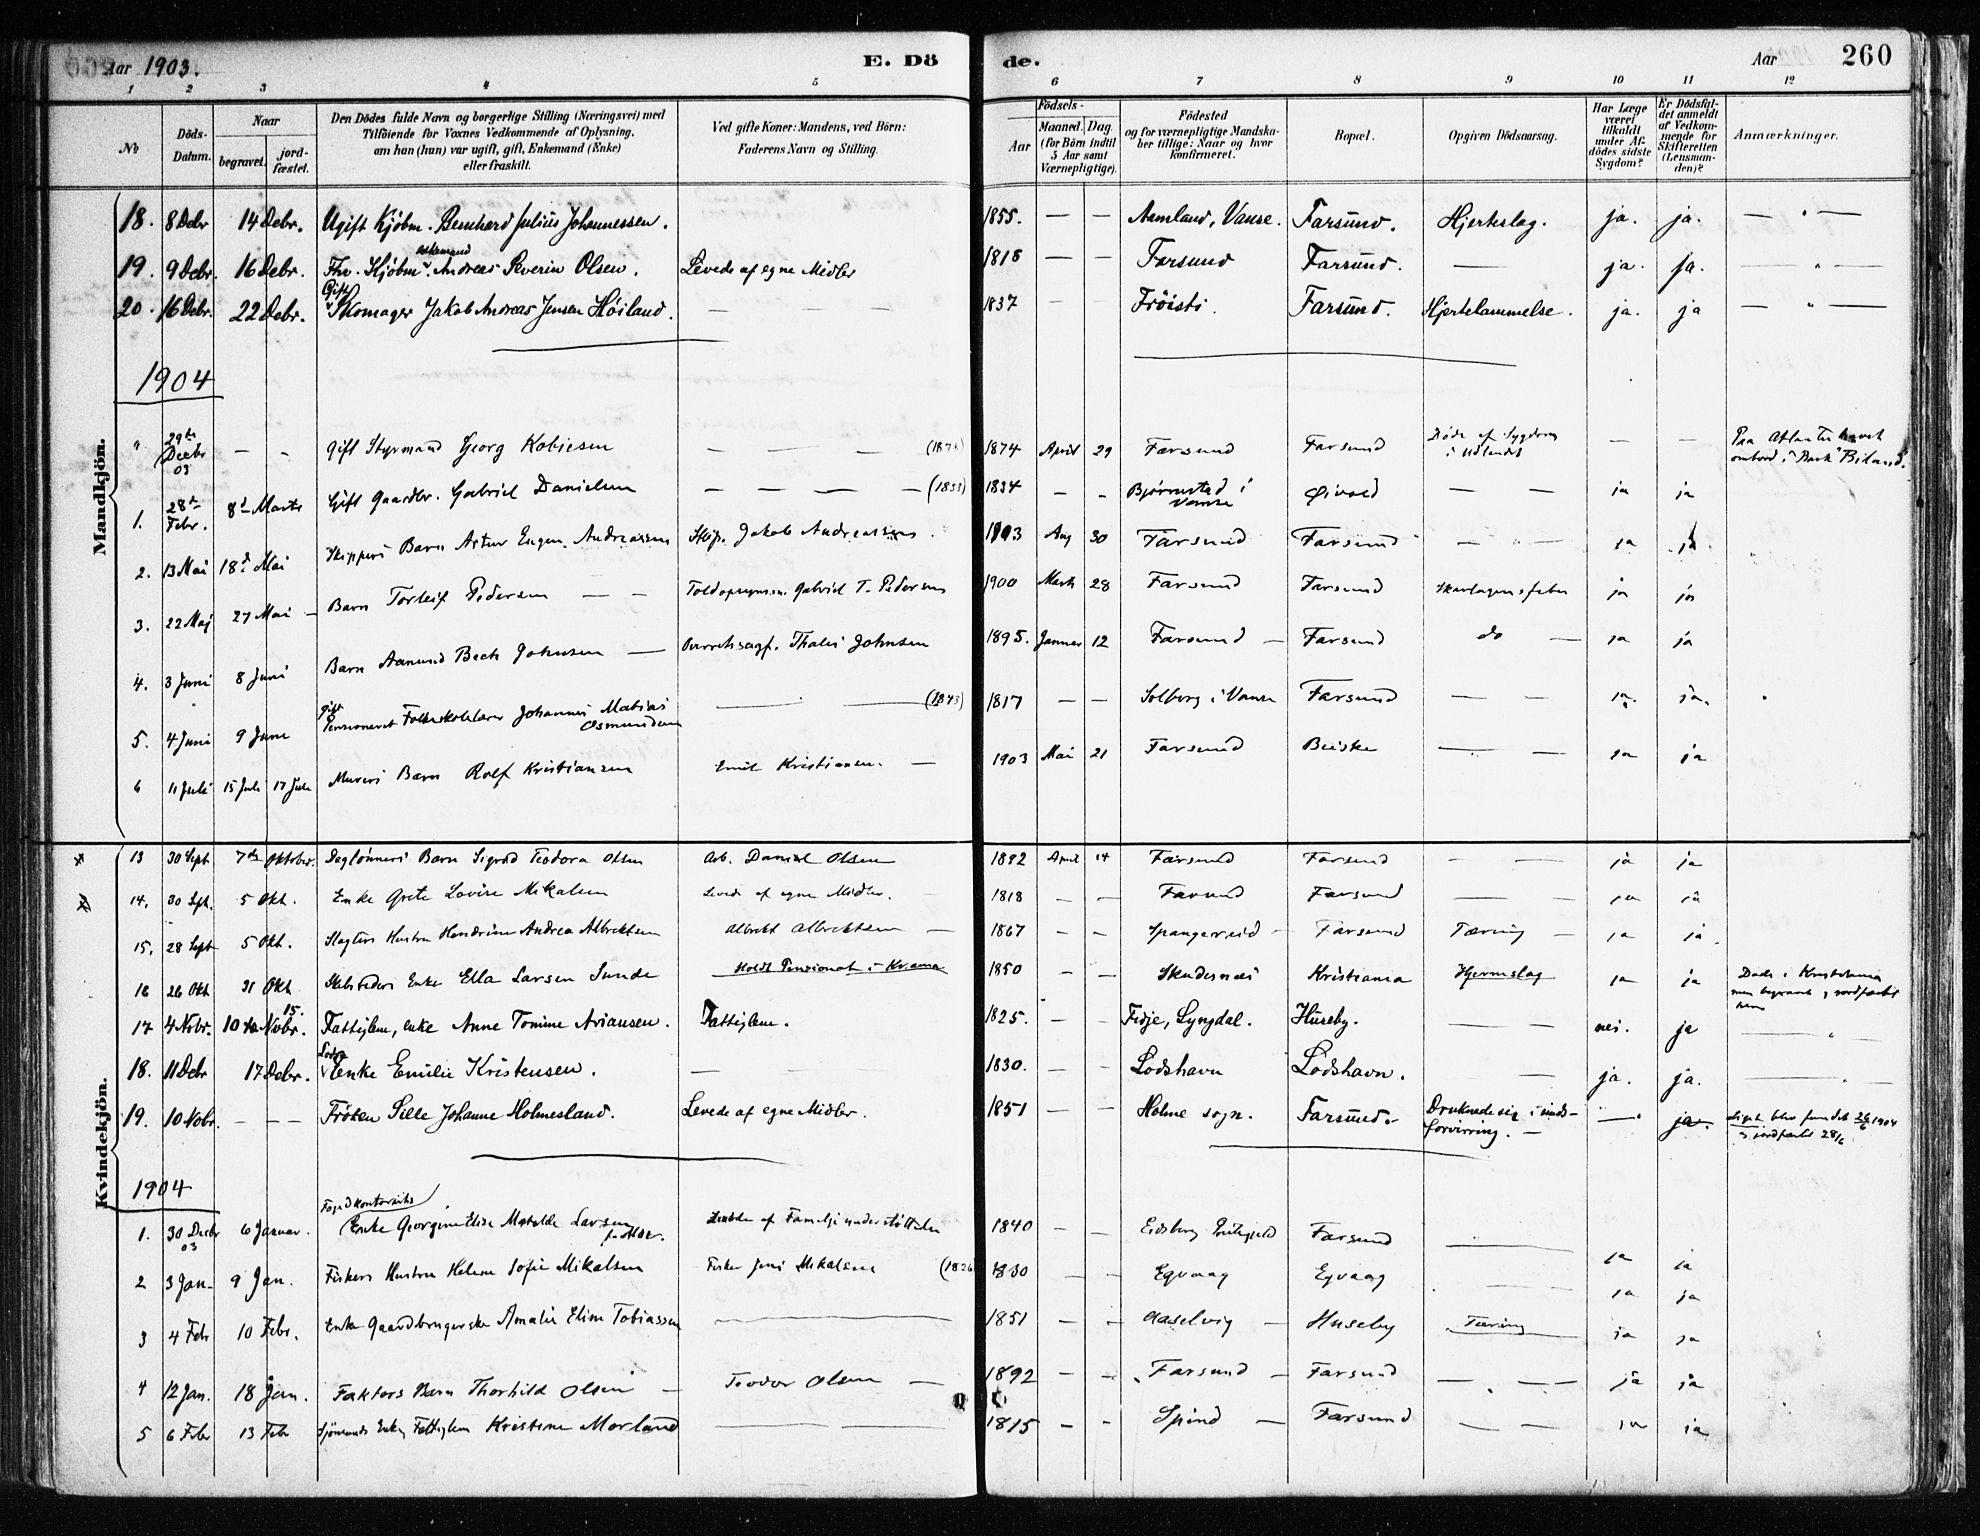 Aar 1903. E. Dö de. Aar 260
1 2 3 4 5 6 7 8 9 10 11 12
No
Döds-Datum.
Naar
begravet. jord-fæstet.
Den Dödes fulde Navn og borgerlige Stilling (Næringsvei) med
Tilföiende for Voxnes Vedkommende af Oplysning,
om han (hun) var ugift, gift, Enkemand (Enke)
eller fraskilt.
Ved gifte Koner: Mandens, ved Börn:
Faderens Navn og Stilling.
Födsels-
Aar Maaned. Dag
(for Börn indtil
5 Aar samt
Værnepligtige).
Födested
og for værnepligtige Mandska-
ber tillige: Naar og hvor
konfirmeret.
Bopæl.
Opgiven Dödsaarsag.
Har Læge
været
tilkaldt
under Af-
dödes sidste
Sygdom?
Er Dödsfal-
det anmeldt
af Vedkom-
mende for
Skifteretten
(Lensman-
den)?
Anmærkninger.
Mandkjön.
18. 8 Debr 14 Debr. Ugift Kjöbm. Bernhard Julius Johannessen. 1855. — — Aamland, Vanse. Farsund. Hjerteslag. ja. ja. — " —
19. 9 Debr. 16 Debr. Fhv. Kjöbm. enkemand Andreas Severin Olsen. Levede af egne Midler 1818 Farsund Farsund. — ja. ja. — " —
20. 16 Debr. 22 Debr. Gift Skomager Jakob Andreas Jensen Höiland. — — — 1837 — Fröisti. Farsund. Hjertelammelse. ja. ja — " —
1904
" 29de Decbr 03 — — Gift Styrmand Georg Kobiesen — — — 1874 April 29 Farsund Farsund Döde af Sygdom i Udlandet — — Paa Atlanterhavet
ombord i "Bark"
1. 28de Febr. 8de Marts Gift Gaardbr. Gabriel Danielsen — — — — (1833) 1834 — — Björnestad i Vanse Öivold — — ja ja
2. 13 Mai 18de Mai Skippers Barn Artur Eugen Andreassen Skip. Jakob Andreassen 1903 Aug 30 Farsund Farsund — — ja ja
3. 22 Maj 27 Mai — Barn Torleif Pedersen — — Gabriel T. Pedersen 1900 Marts 28 Farsund Farsund Skarlagensfeber ja ja
4. 3 Juni 8 Juni Barn Aanund Bech Johnsen — Overretssagf. Thales Johnsen 1895. Januar 12 Farsund — Farsund do — ja ja
5. 4 Juni 9 Juni gift Pensioneret Folkeskolelærer Johannes Matias Osmundsen — — (1843) 1817 — — Solberg i Vanse Farsund — — ja. ja.
6 11 Juli 15 Juli 17 Juli Murers Barn Rolf Kristiansen Emil Kristiansen. — 1903 Mai 21 Farsund Beiske — — ja ja
Kvindekjön.
13 30 Sept 7de Oktober. Daglönners Barn Sigrid Teodora Olsen Arb. Daniel Olsen 1892 April 14 Farsund Farsund — — ja ja
14. 30 Sept. 5 Okt. Enke Grete Lovise Mikalsen Levede af egne Midler. 1818 — — Farsund Farsund — — ja ja
15. 28 Sept 5 Okt. Slagters Hustru Hendrine Andrea Albrektsen Albrekt Albrektsen — 1867 — — Spangereid — Farsund Tæring — ja ja
16 26 Okt 31 Okt Enke Ella Larsen Sunde Holdt Pensionat i Kr.ania 1850 — — Skudesnæs Kristiania Hjerneslag ja ja Döde i Kristiania
men begravet og jordfæstet
her
17 4 Nvbr. 10de Nvbr. 15. Fattiglem, enke Anne Tomine Ariansen. Fattiglem. 1825. — — Fidje, Lyngdal. Huseby. — — nei. ja — " —
18. 11 Debr 17 Debr. Lods Enke Emilie Kristensen. — — 1830. — — Lodshavn Lodshavn. — ja. ja. — " —
19. 10 Nvbr. — — — Fröken Sille Johanne Holmesland. Levede af egne Midler. 1851 — — Holme sogn. Farsund. Druknede sig i sinds-
forvirring. — — ja. Liget blev fundet 26/6 1904
og jordfæstet 28/6
1904
1. 30 Decbr 03 6 Januar. Fogedkontorists Enke Georgine Elise Matilde Larsen Levede af Familieunderstöttelse 1840 — Eidsberg Farsund —
2 3 Jan. 9 Jan. Fiskers Hustru Helene Sofie Mikalsen Fisker Jens Mikalsen (1826 1830 — — Egvaag Egvaag — — ja ja
3 4 Febr 10 Febr. Enke Gaardbrugerske Amalie Eline Tobiassen — 1851 — — Aaselvig — Huseby Tæring ja ja
4 12 Jan. 18 Jan. Faktors Barn Thorhild Olsen — Teodor Olsen — 1892 — — Farsund — Farsund — — — ja ja
5 6 Febr 13 Febr Sjömands Enke, Fattiglem Kristine Morland — 1815 — — Spind — Farsund — — ja ja